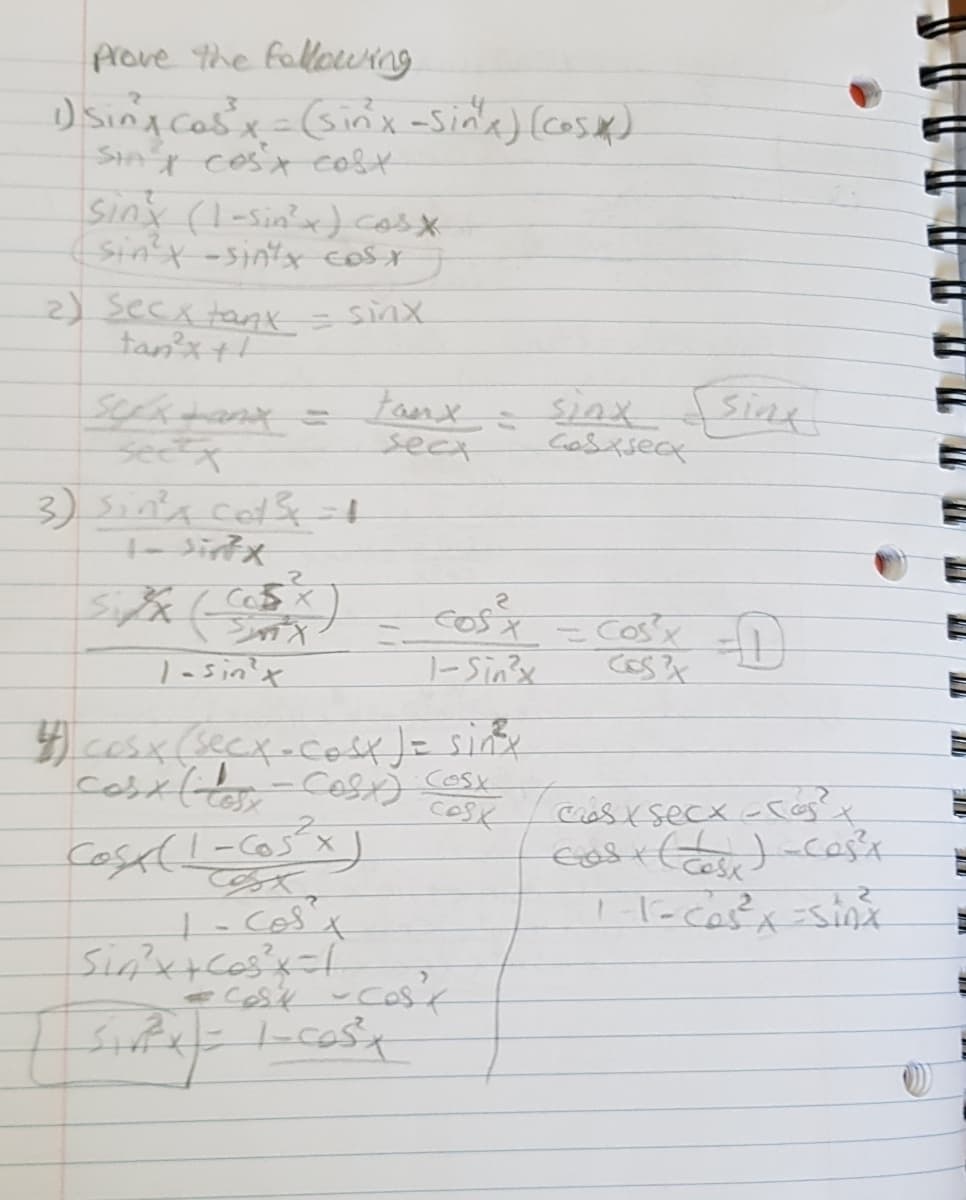 Prove the following
1) sin²x cos³x = (sin²x - sin⁴x) (cosx)
sin²x cos²x cosx
sin²x (1-sin²x) cosx
sin²x - sin⁴x cosx
2) secx tanx / tan²x + 1 = sinx
secx tanx / sec²x = tanx / secx = sinx / cosxsecx = sinx
3) sin²x cot²x / 1 - sin²x = 1
sin²x (cos²x / sin²x) / 1 - sin²x = cos²x / 1 - sin²x = cos²x / cos²x = 1
4) cosx (secx - cosx) = sin²x
cosx (1 / cosx - cosx) cosx / cosx
cosx (1 - cos²x / cosx)
1 - cos²x
sin²x + cos²x = 1
- cos²x - cos²x
sin²x = 1 - cos²x
cosx secx - cos²x
cosx (1 / cosx) - cos²x
1 - cos²x = sin²x